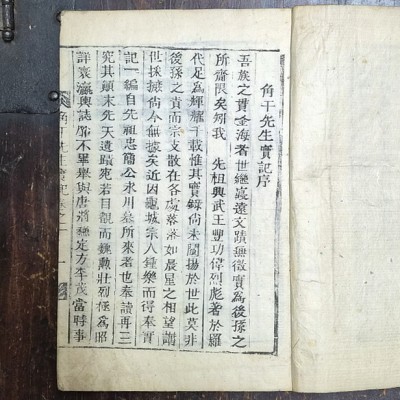 角干先生實記序
吾族之貫金海者世繼裒遠文蹟無徵實爲後孫之
所齋限矣矧我 先祖興武王豐功偉烈彪著於羅
代足爲輝耀千載惟其實錄尙未闡揚於世此莫非
後孫之責而宗支散在各處落如晨星之相望謄
世採摭尙今無據矣近因觀城宗人鍾樂而得奉實
記一編自先祖忠簡公永川祭所來者也奉讀再三
究其顚末先天遺蹟宛若目覩而魏勳壯烈極爲昭
詳裒瀛輿誌鄎不畢擧與唐將蘇定方李茂當時事
角干先生實記卷之一